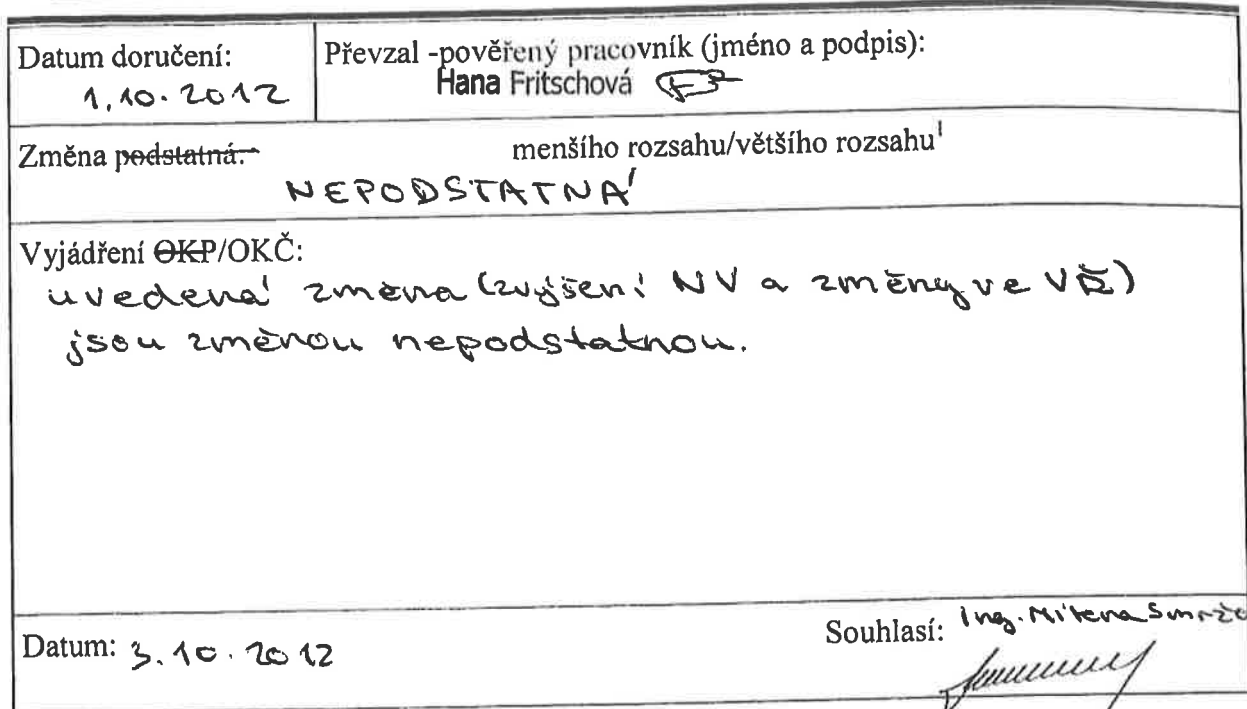 Datum doručení:
1.10.2012
Převzal -pověřený pracovník (jméno a podpis):
Hana Fritschová
Změna podstatná: menšího rozsahu/většího rozsahu¹
NEPODSTATNÁ
Vyjádření OKP/OKČ:
uvedená změna (zvýšení NV a změny ve VŘ)
jsou změnou nepodstatnou.
Datum: 3.10.2012
Souhlasí: Ing. Milena